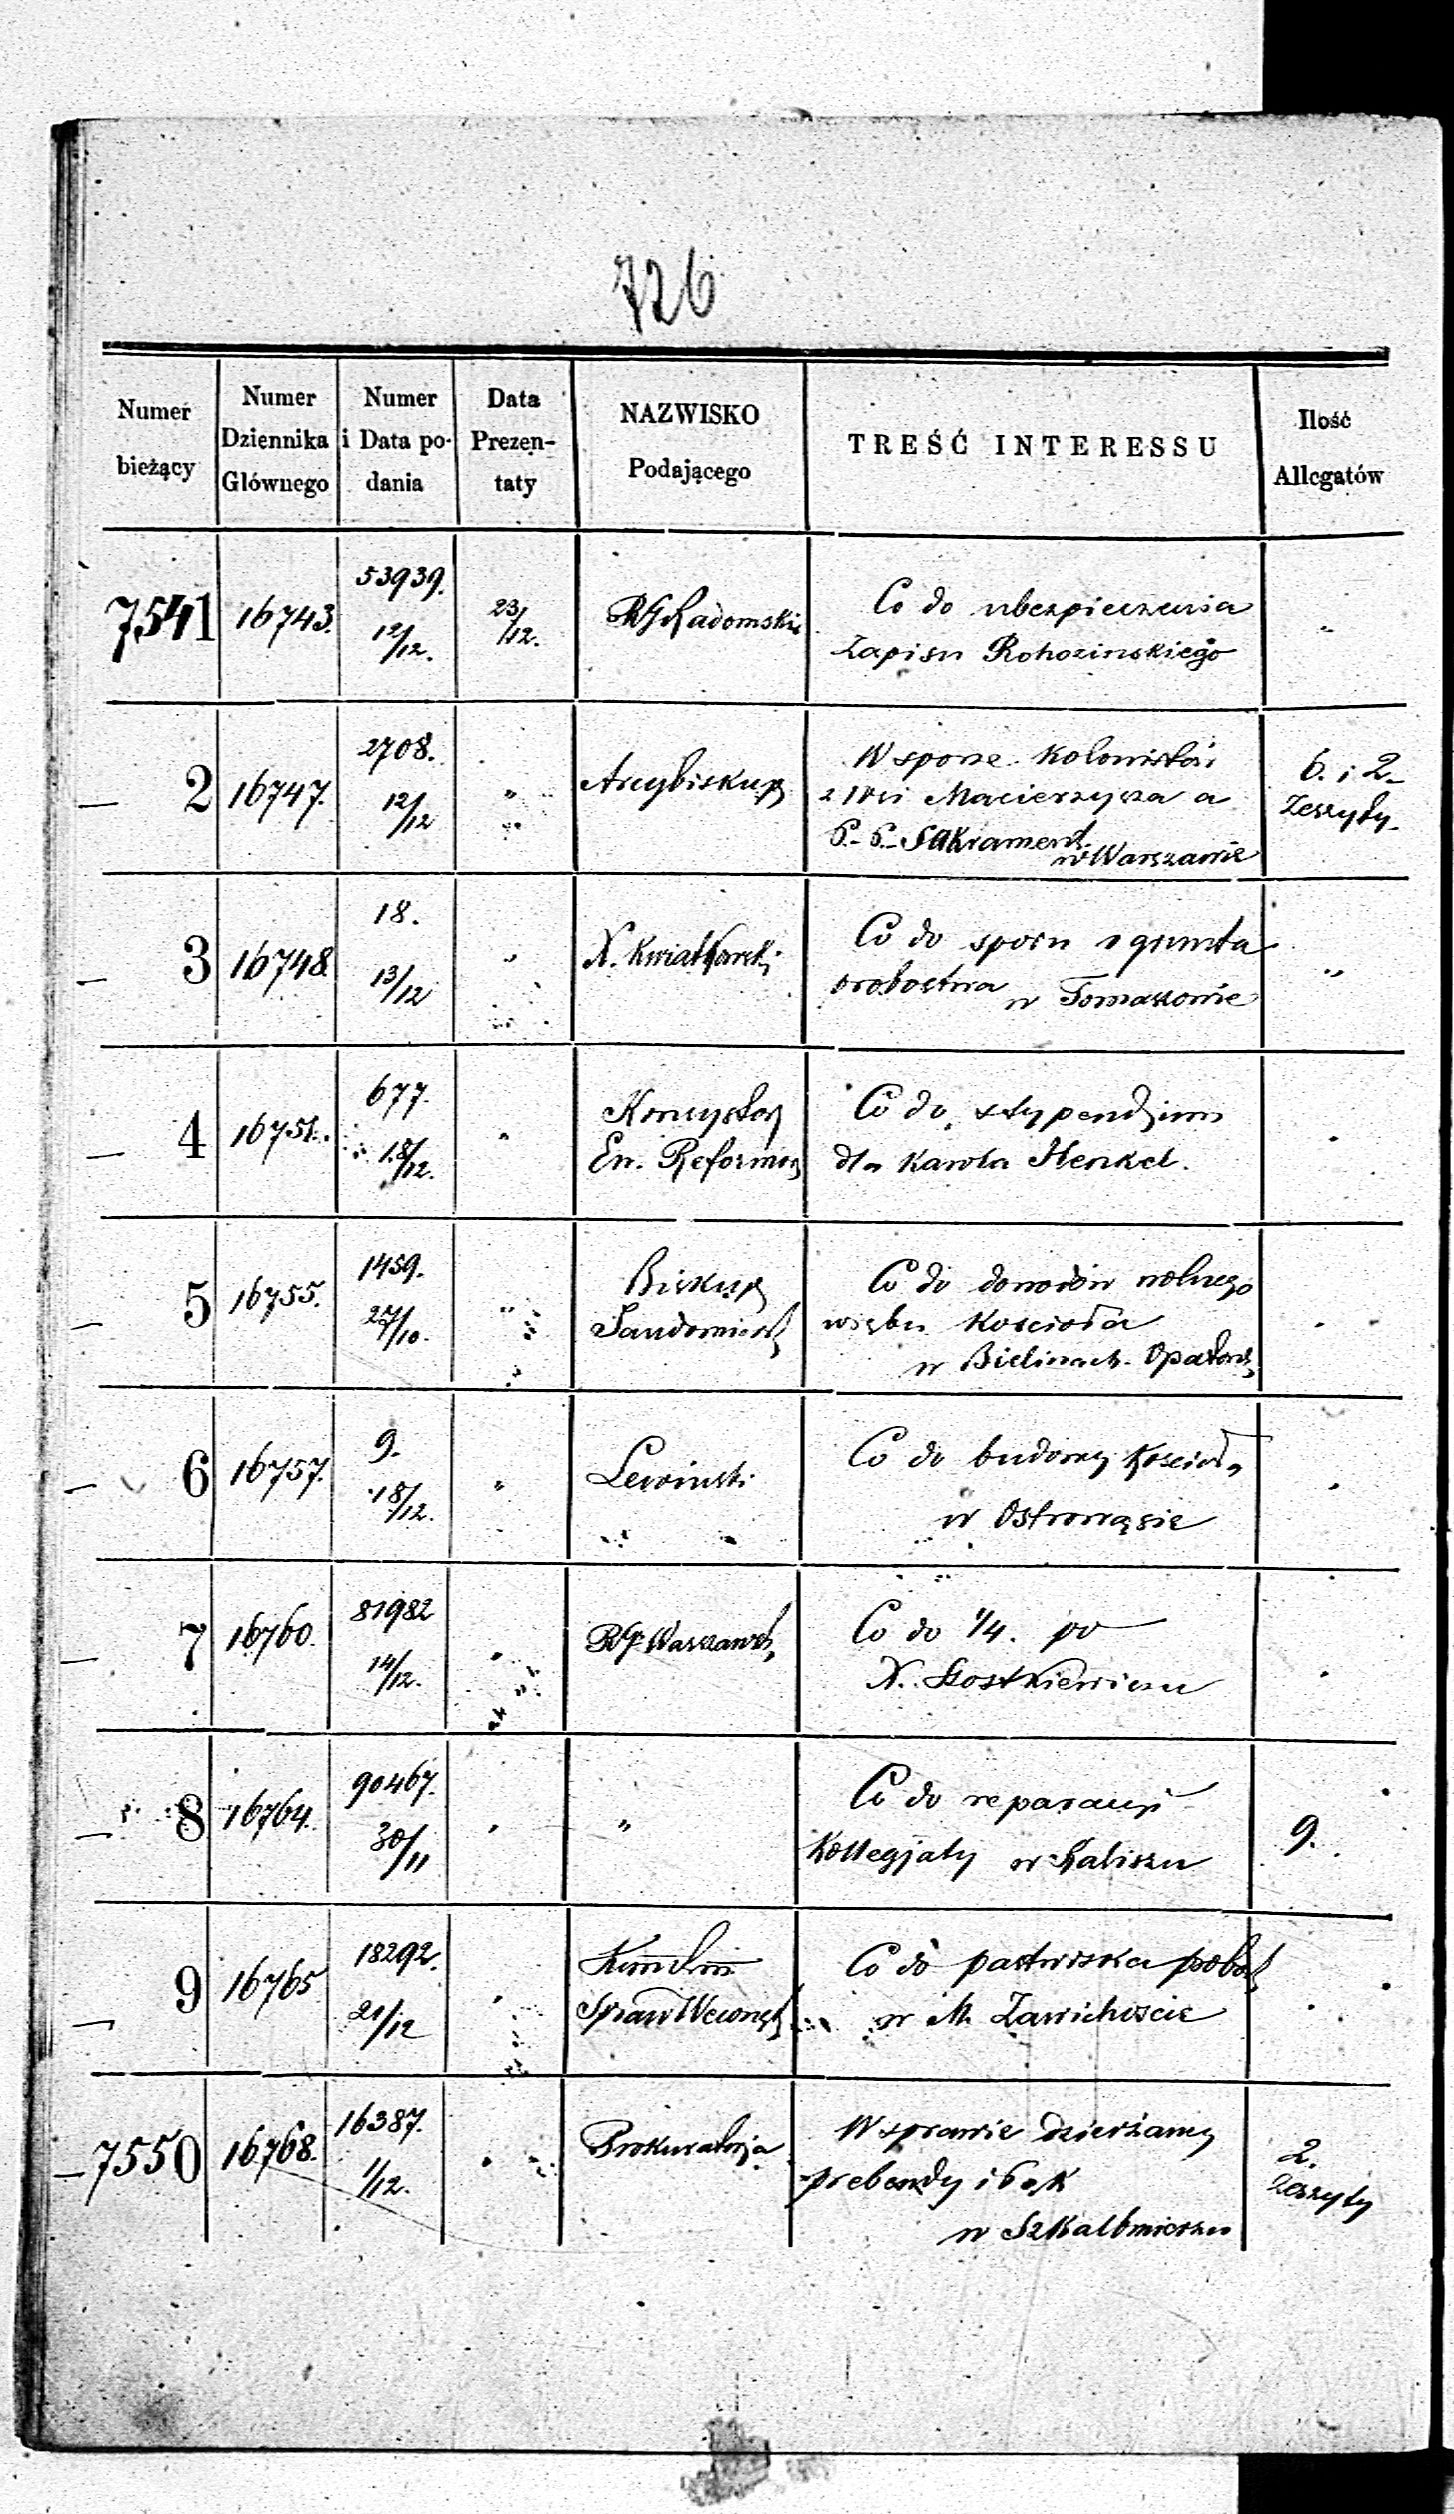 726
Numer bieżący | Numer Dziennika Głównego | Numer i Data podania | Data Prezentaty | NAZWISKO Podającego | TREŚĆ INTERESSU | Ilość Allegatów
7541 16743. 53939. 12/12. 23/12. RG Radomski
Co do ubezpieczenia
Zapisu Rohozinskiego "
2 16747. 2708. 12/12 " Arcybiskup
W sporze Kolonistów
z Wsi Macierzysza a
P. P. Sakrament.
w Warszawie
6. i 2.
Zeszyty.
3 16748 18. 13/12 " X. Kwiatkowski
Co do sporu o grunta
probostwa w Tomaszowie "
4 16751. 677. 18/12. "
Konsystorz
Ew. Reformow
Co do stypendium
dla Karola Henkel.
5 16755. 1459. 27/10. "
Biskup
Sandomierski
Co do dowodów wolnego
wrębu Kościoła
w Bielinach Opatows
6 16757. 9. 18/12. " Lewinski
Co do budowy Kościoła
w Ostrowąsie
7 16760. 81982 14/12. " RG Warszawsk
Co do 1/4. po
X. Szostkiewiczu
8 16764. 90467. 30/11 " "
Co do reparacyi
Kollegjaty w Kaliszu
9.
9 16765 18292. 21/12 "
Spraw Wewnęt
Co do pastwiska probos
w M. Zawichoście
7550 16768. 16387. 1/12. " Prokuratorja
W sprawie dzierżawy
prebendy i łąk
w Szkalbmierzu
2.
Zeszyty